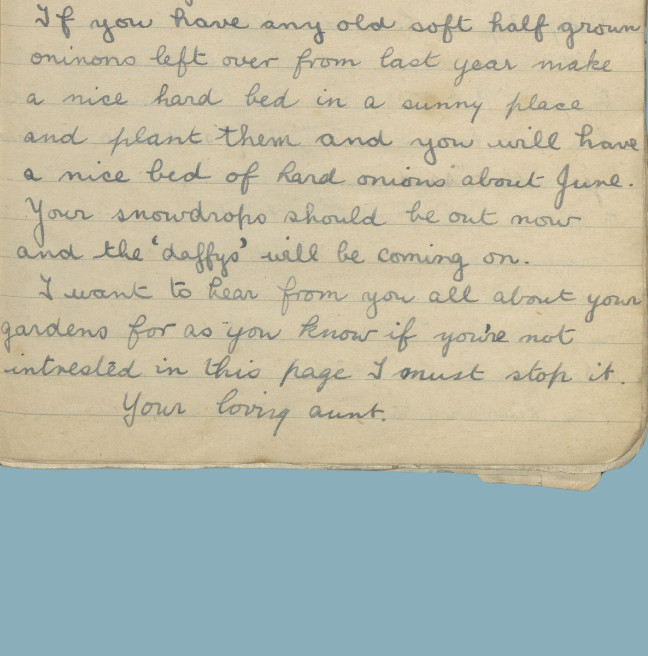 If you have any old soft half grown
oninons left over from last year make
a nice hard bed in a sunny place
and plant them and you will have
a nice bed of hard onions about June.
Your snowdrops should be out now
and the 'daffys' will be coming on.
I want to hear from you all about your
gardens for as you know if you're not
intrested in this page I must stop it.
Your loving aunt.